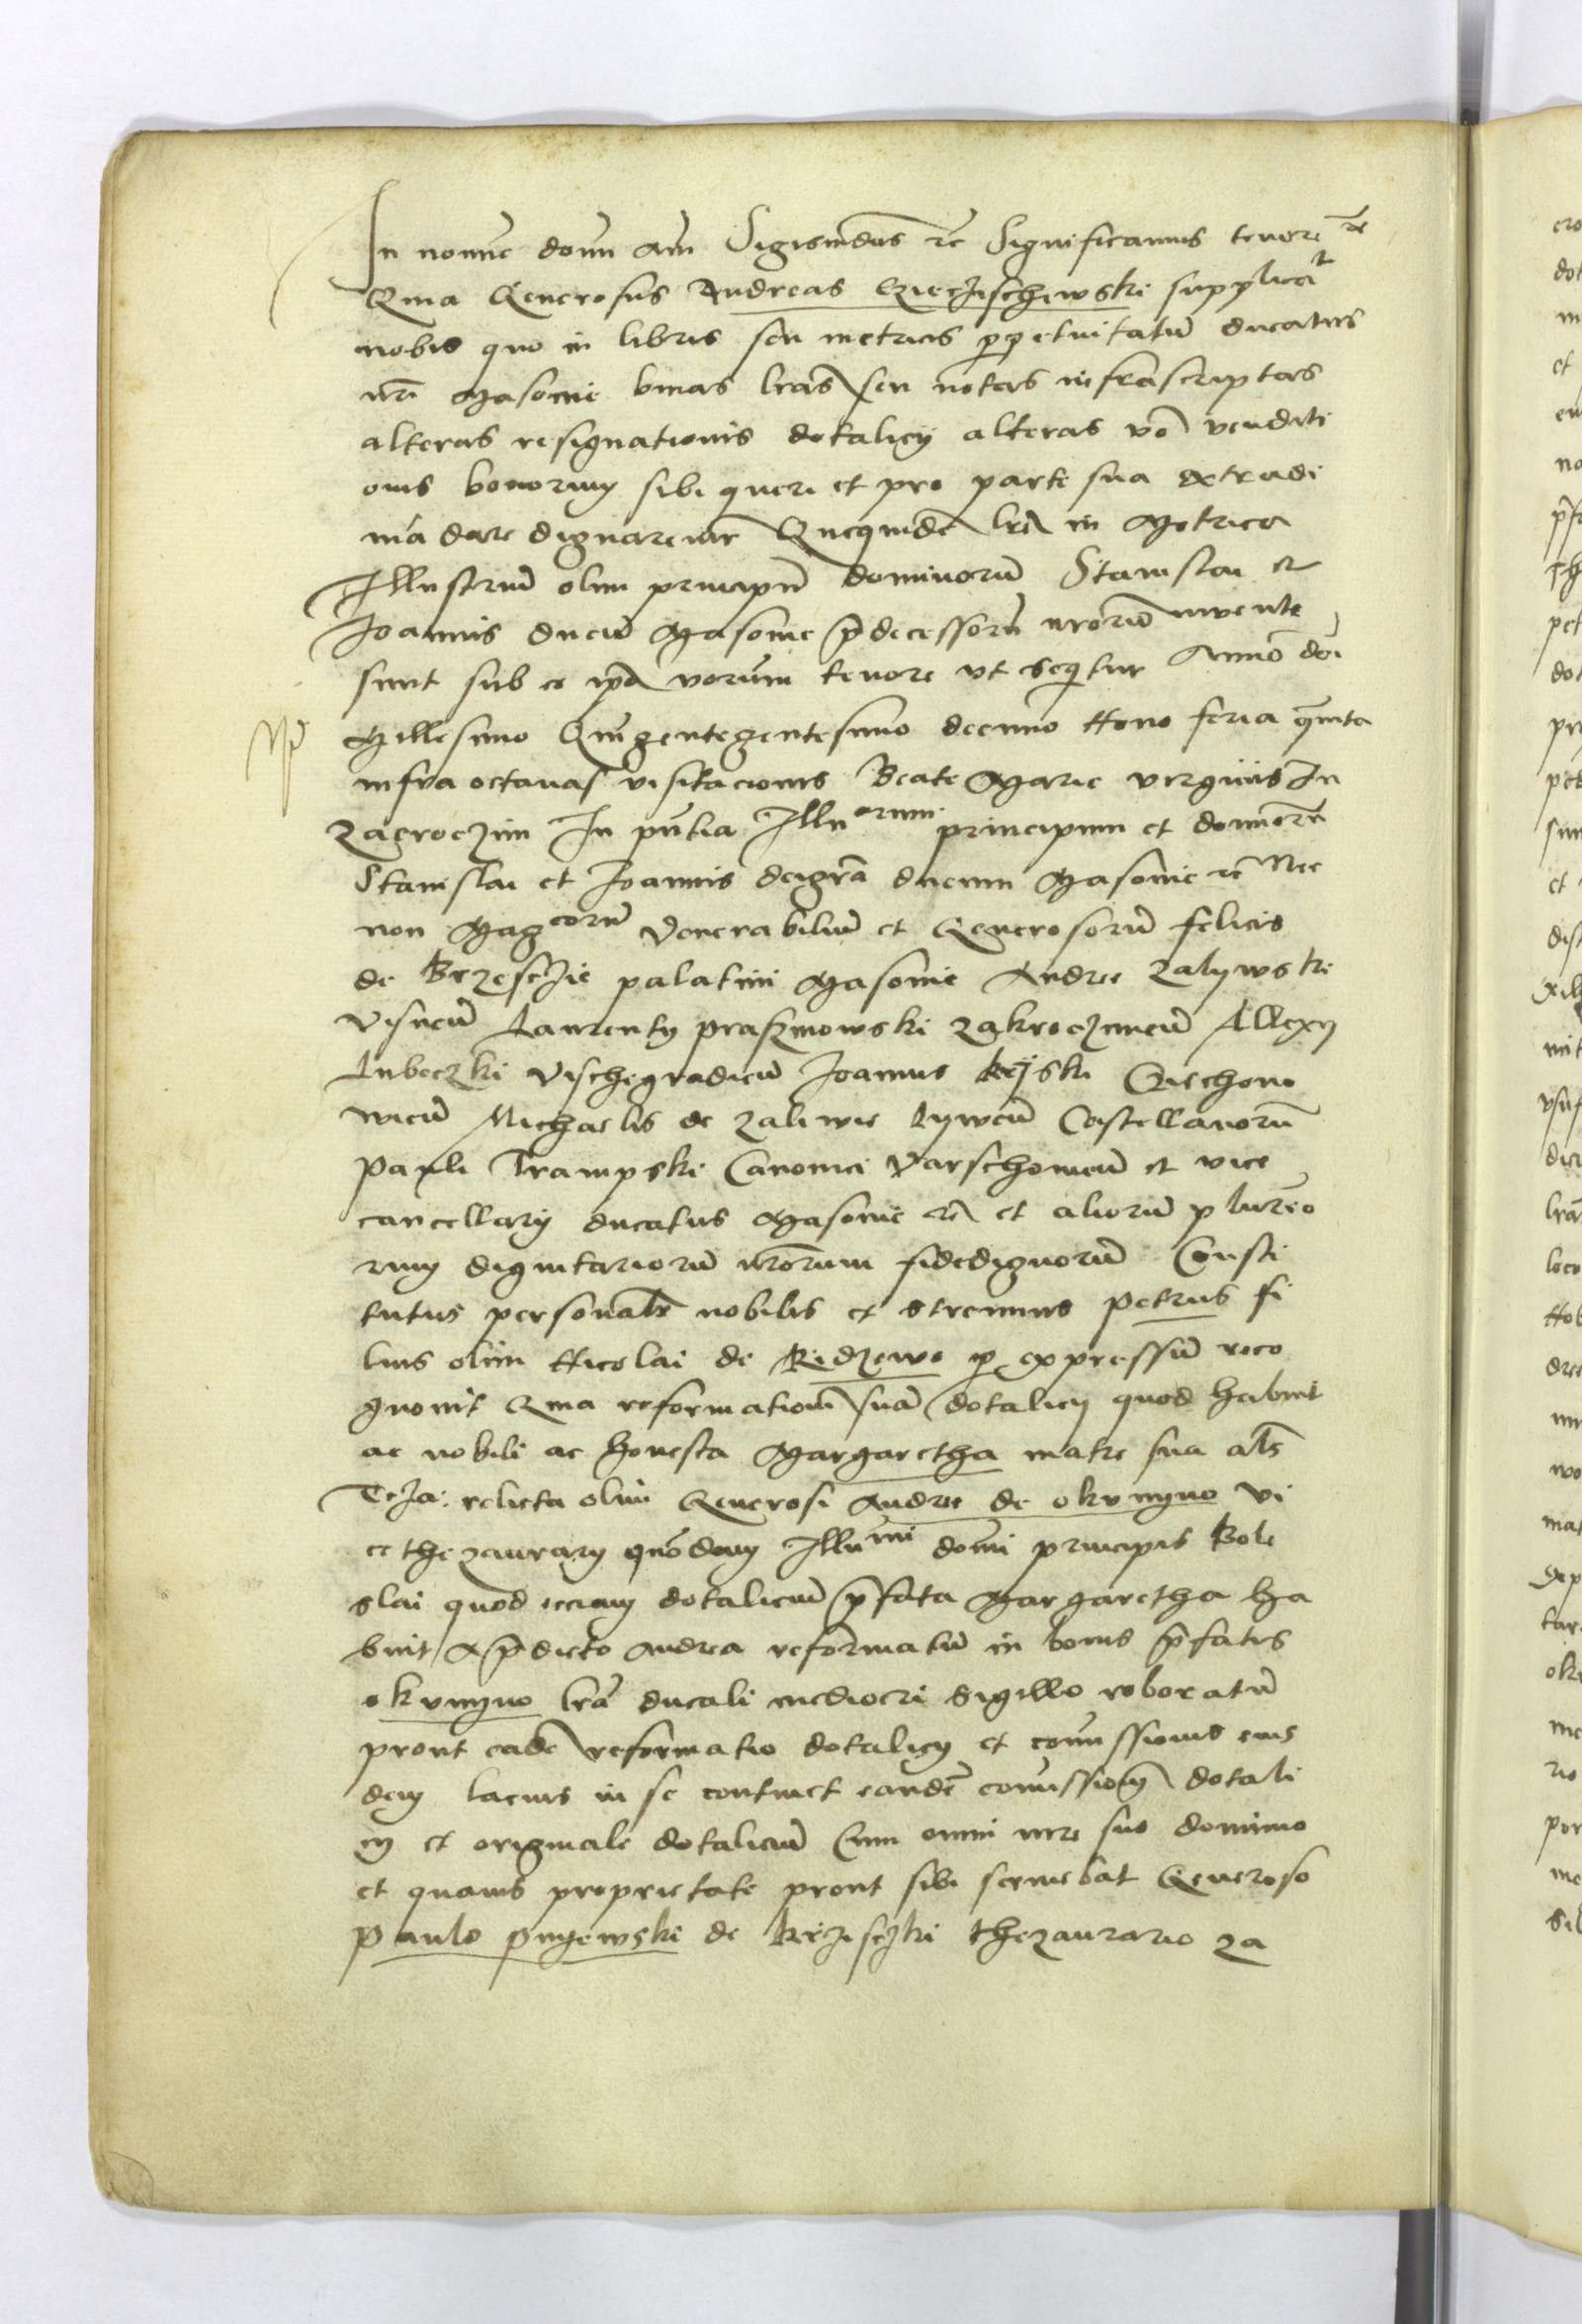 In nomine domini amen Sigismūdus rc̄ Significamus tenore rc̄
Quia Generosus Andreas Cziecʒischewski supplicat
nobis quo in libris seu metricis ꝑpetuitatū ducatus
nr̄i Masovie binas lr̄as seu notas infrascriptas
alteras resignationis dotalicij alteras vo venditi
onis bonorum sibi queri et pro parte sua extradi
mādare dignaremur Quequidē lr̄e in Metrica
Illustriū olim principū dominorū Stanislai et
Joannis ducū Masovie p̄decessorū nr̄orū invente
sunt sub eo verum tenore ut sequitur Anno dn̄i
Millesimo Quingentegentesimo decimo Nono feria quinta
infra octavas visitacionis Beate Marie virginis In
Zacroczim In pn̄tia Illuorum principum et dominorū
Stanislai et Joannis deigrā ducum Masovie rc̄ Nec
non Magcorū Venerabiliū et Generosorū felicis
de Brzescʒie palatini Masovie Andree Zalywski
Visneñ Laurentij praszmowski Zakroczimeñ Allexij
Lubeczki Vischegradieñ Joannis kijski Cziechono
vieñ Michaelis de Zaliwie Lyweñ Castellanorū
Pauli Trampski Canonici Varschovieñ et vice
cancellarij ducatus Masovie rc̄ et aliorū plurimo
rum dignitariorū nr̄orum fidedignorū Consti
tutus personalr̄ nobilis et strenuus petrus fi
lius olim Nicolai de Kidzewo ꝑ expressū reco
gnovit Quia reformationē suā dotalicij quod habuit
ac nobili ac honesta Margaretha matre sua al̄s
olim Generosi Andree de okunyno vi
ce thezaurarij quōdam Illūmi domini principis Bole
slai quod eciam dotaliciū p̄fata Margaretha ha
buit a p̄dicto Andrea reformatū in bonis p̄fatis
okunyno lr̄a ducali mediocri sigillo roboratū
prout eadē reformatio dotalicij et comissionis eius
dem lacius in se continet eandē comissionē dotali
cij et originale dotaliciū Cum omni iure suo dominio
et quavis proprietate prout sibi serviebat Generoso
Paulo pnyewski de thezaurario za